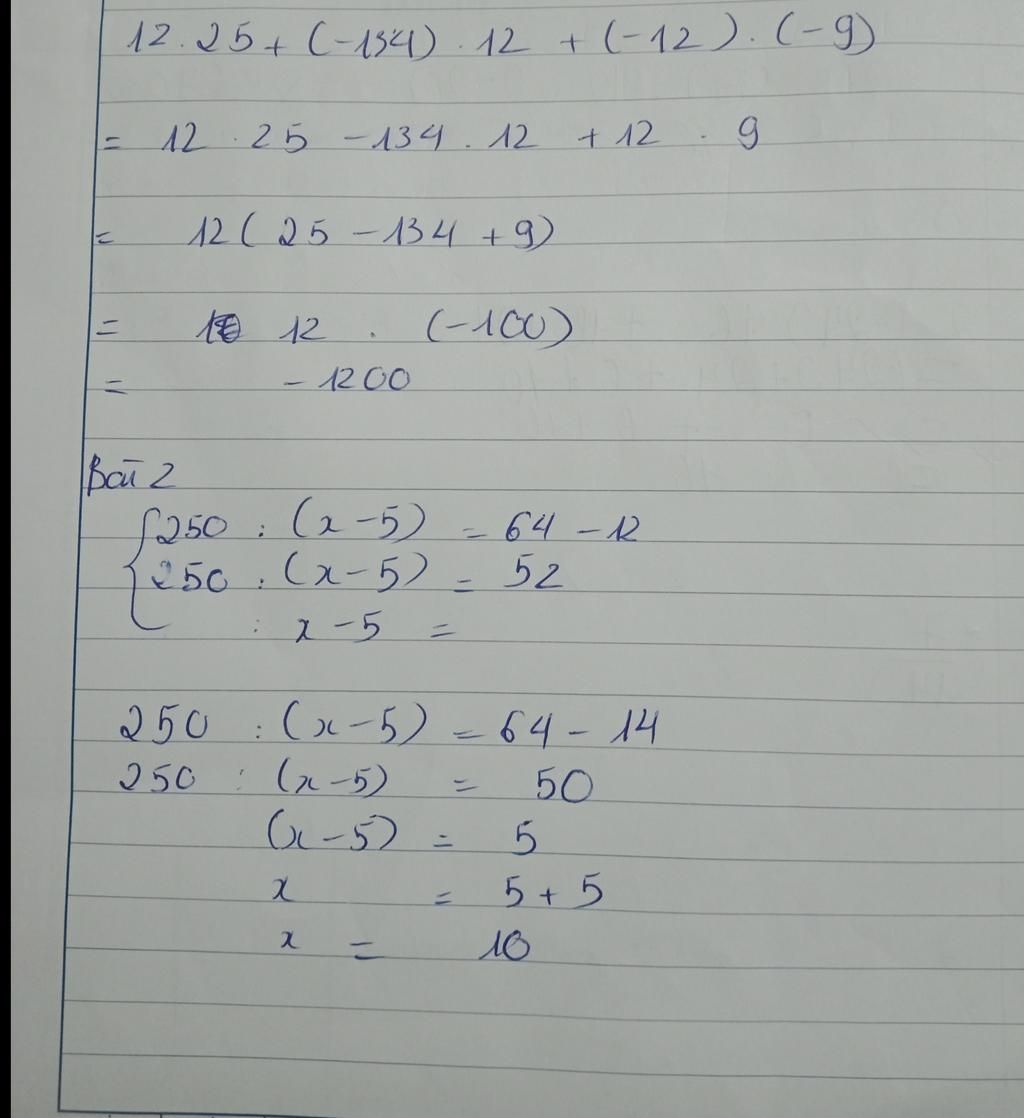 12 . 25 + (-134) . 12 + (-12) . (-9)
= 12 . 25 - 134 . 12 + 12 . 9
= 12 ( 25 - 134 + 9)
= 12 . (-100)
= - 1200
Bài 2
250 : (x - 5) = 64 - 12
250 : (x - 5) = 52
: x - 5 =
250 : (x - 5) = 64 - 14
250 : (x - 5) = 50
(x - 5) = 5
x = 5 + 5
x = 10